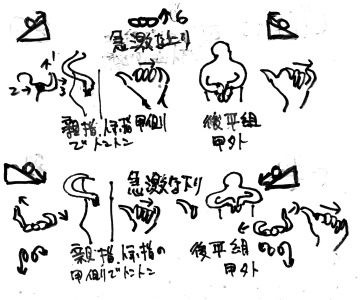 6
急激な上り
1
2 3
親指、人指 甲側
でトントン
後平組
甲外
急激な下り
親指、人指の
甲側でトントン
後平組
甲外